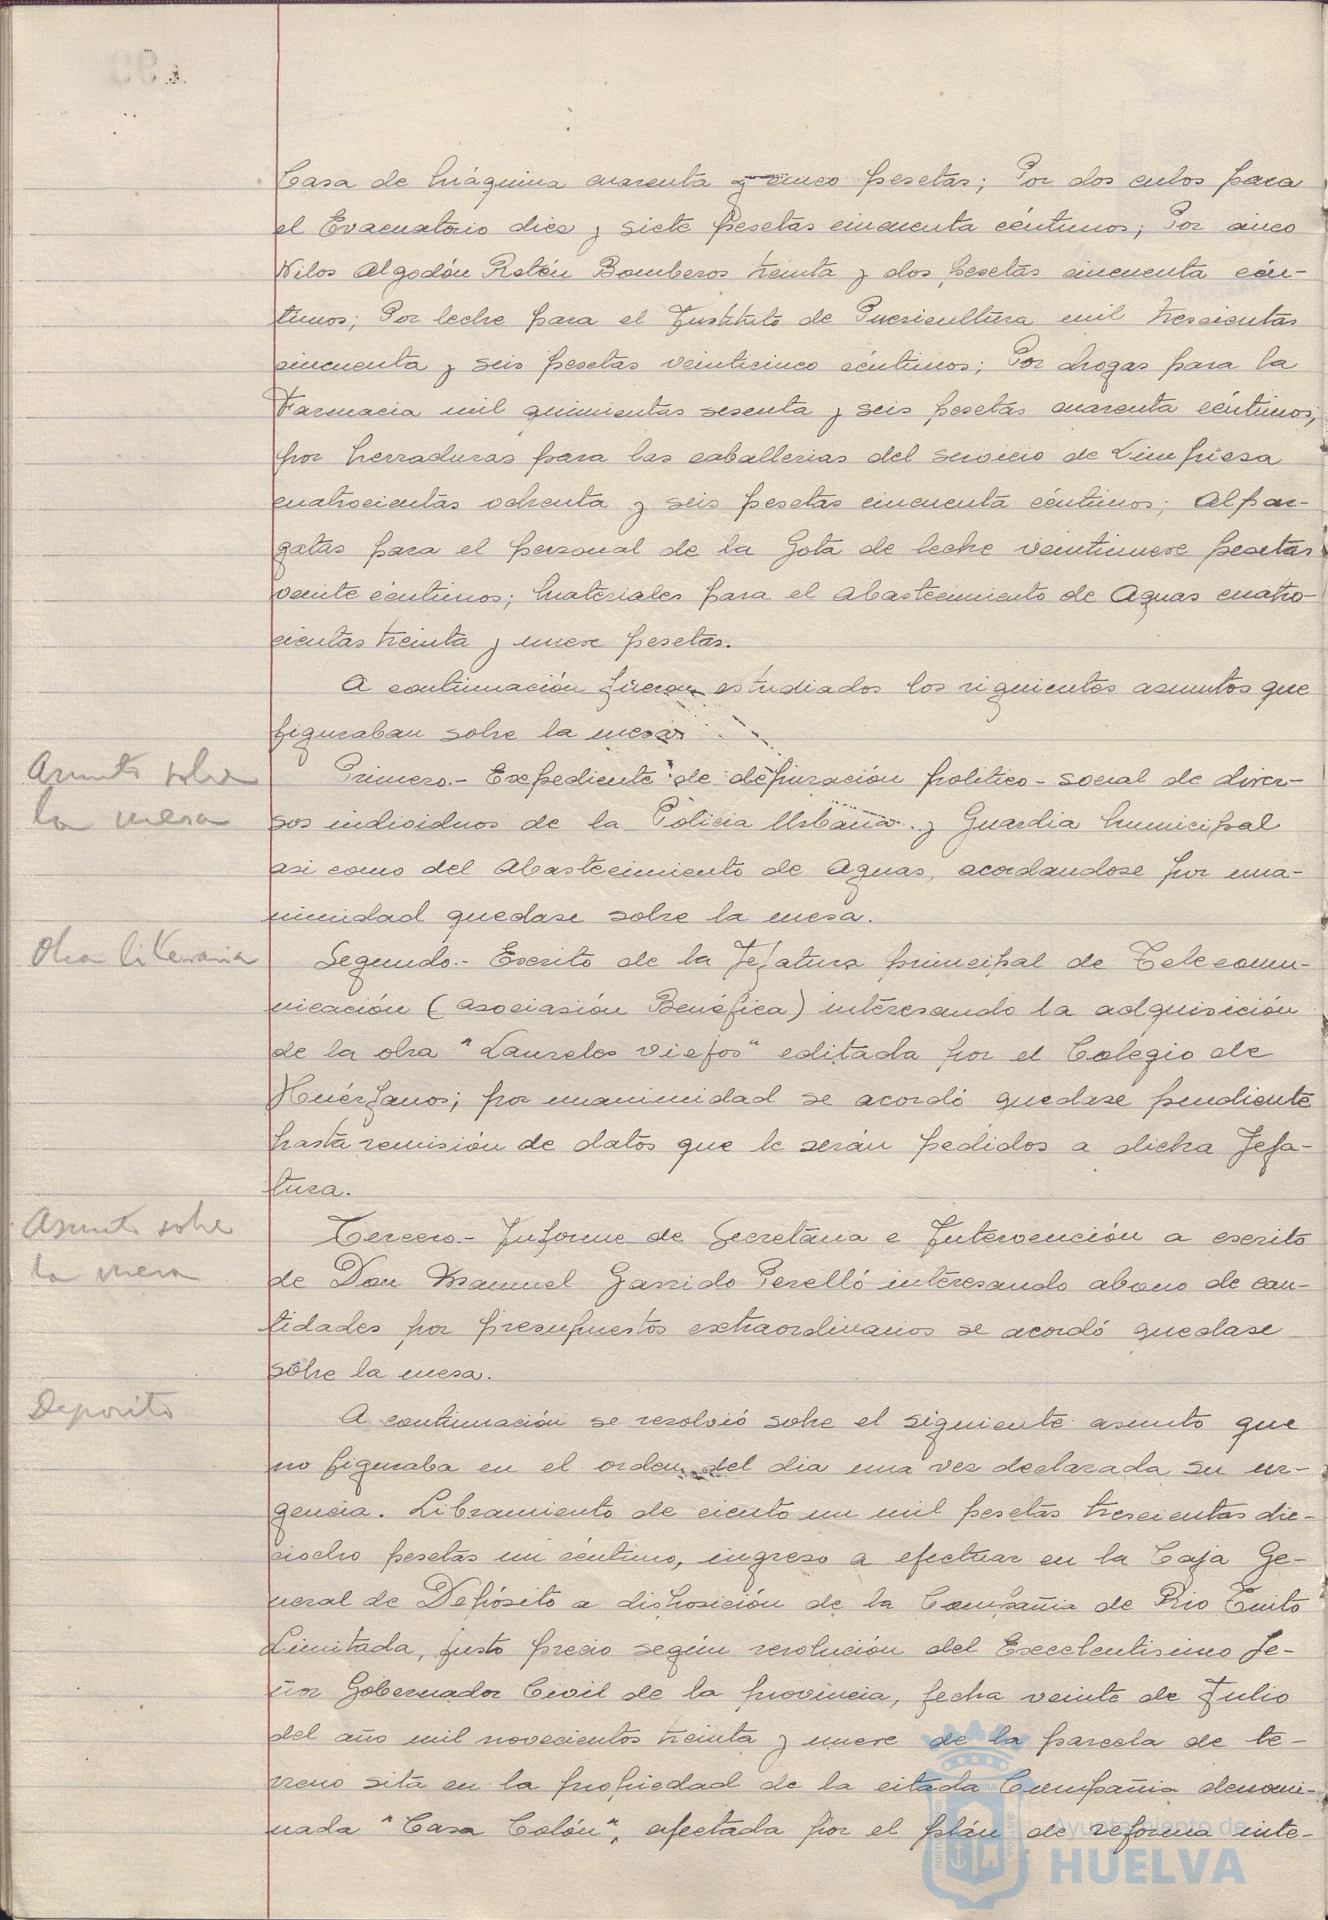 Casa de máquina cuarenta y cinco pesetas; Por dos cubos para
el Evacuatorio diez y siete pesetas cincuenta céntimos; Por cinco
Kilos Algodón Ratén Bomberos treinta y dos pesetas cincuenta cén-
timos; Por leche para el Instituto de Puericultura mil trescientas
cincuenta y seis pesetas veinticinco céntimos; Por drogas para la
Farmacia mil quinientas sesenta y seis pesetas cuarenta céntimos;
por herraduras para las caballerias del servicio de Limpieza
cuatrocientas ochenta y seis pesetas cincuenta céntimos; Alpar-
gatas para el personal de la Gota de leche veintinueve pesetas
veinte céntimos; materiales para el Abastecimiento de Aguas cuatro-
cientas treinta y nueve pesetas.
A continuación fueron estudiados los siguientes asuntos que
figuraban sobre la mesa:
Asunto sobre
la mesa
Primero.- Expediente de depuración politico-social de diver-
sos individuos de la Policia Urbana y Guardia municipal
asi como del Abastecimiento de Aguas, acordandose por una-
nimidad quedase sobre la mesa.
Obra literaria
Segundo.- Escrito de la Jefatura principal de Telecomu-
nicación (Asociasión Benéfica) interesando la adquisición
de la obra "Laureles viejos" editada por el Colegio de
Huérfanos; por unanimidad se acordó quedase pendiente
hasta remisión de datos que le serán pedidos a dicha Jefa-
tura.
Asunto sobre
la mesa
Tercero.- Informe de Secretaria e Intervención a escrito
de Don Manuel Garrido Perelló interesando abono de can-
tidades por presupuestos extraordinarios se acordó quedase
sobre la mesa.
Deposito
A continuación se resolvió sobre el siguiente asunto que
no figuraba en el orden del dia una vez declarada su ur-
gencia. Libramiento de ciento un mil pesetas trescientas die-
ciocho pesetas un céntimo, ingreso a efectuar en la Caja Ge-
neral de Depósito a disposición de la Compañia de Rio Tinto
Limitada, justo precio según resolución del Excelentisimo Se-
ñor Gobernador Civil de la provincia, fecha veinte de Julio
del año mil novecientos treinta y nueve de la parcela de te-
rreno sita en la propiedad de la citada Compañia denomi-
nada "Casa Colón", afectada por el plán de reforma inte-
Ayuntamiento de
HUELVA